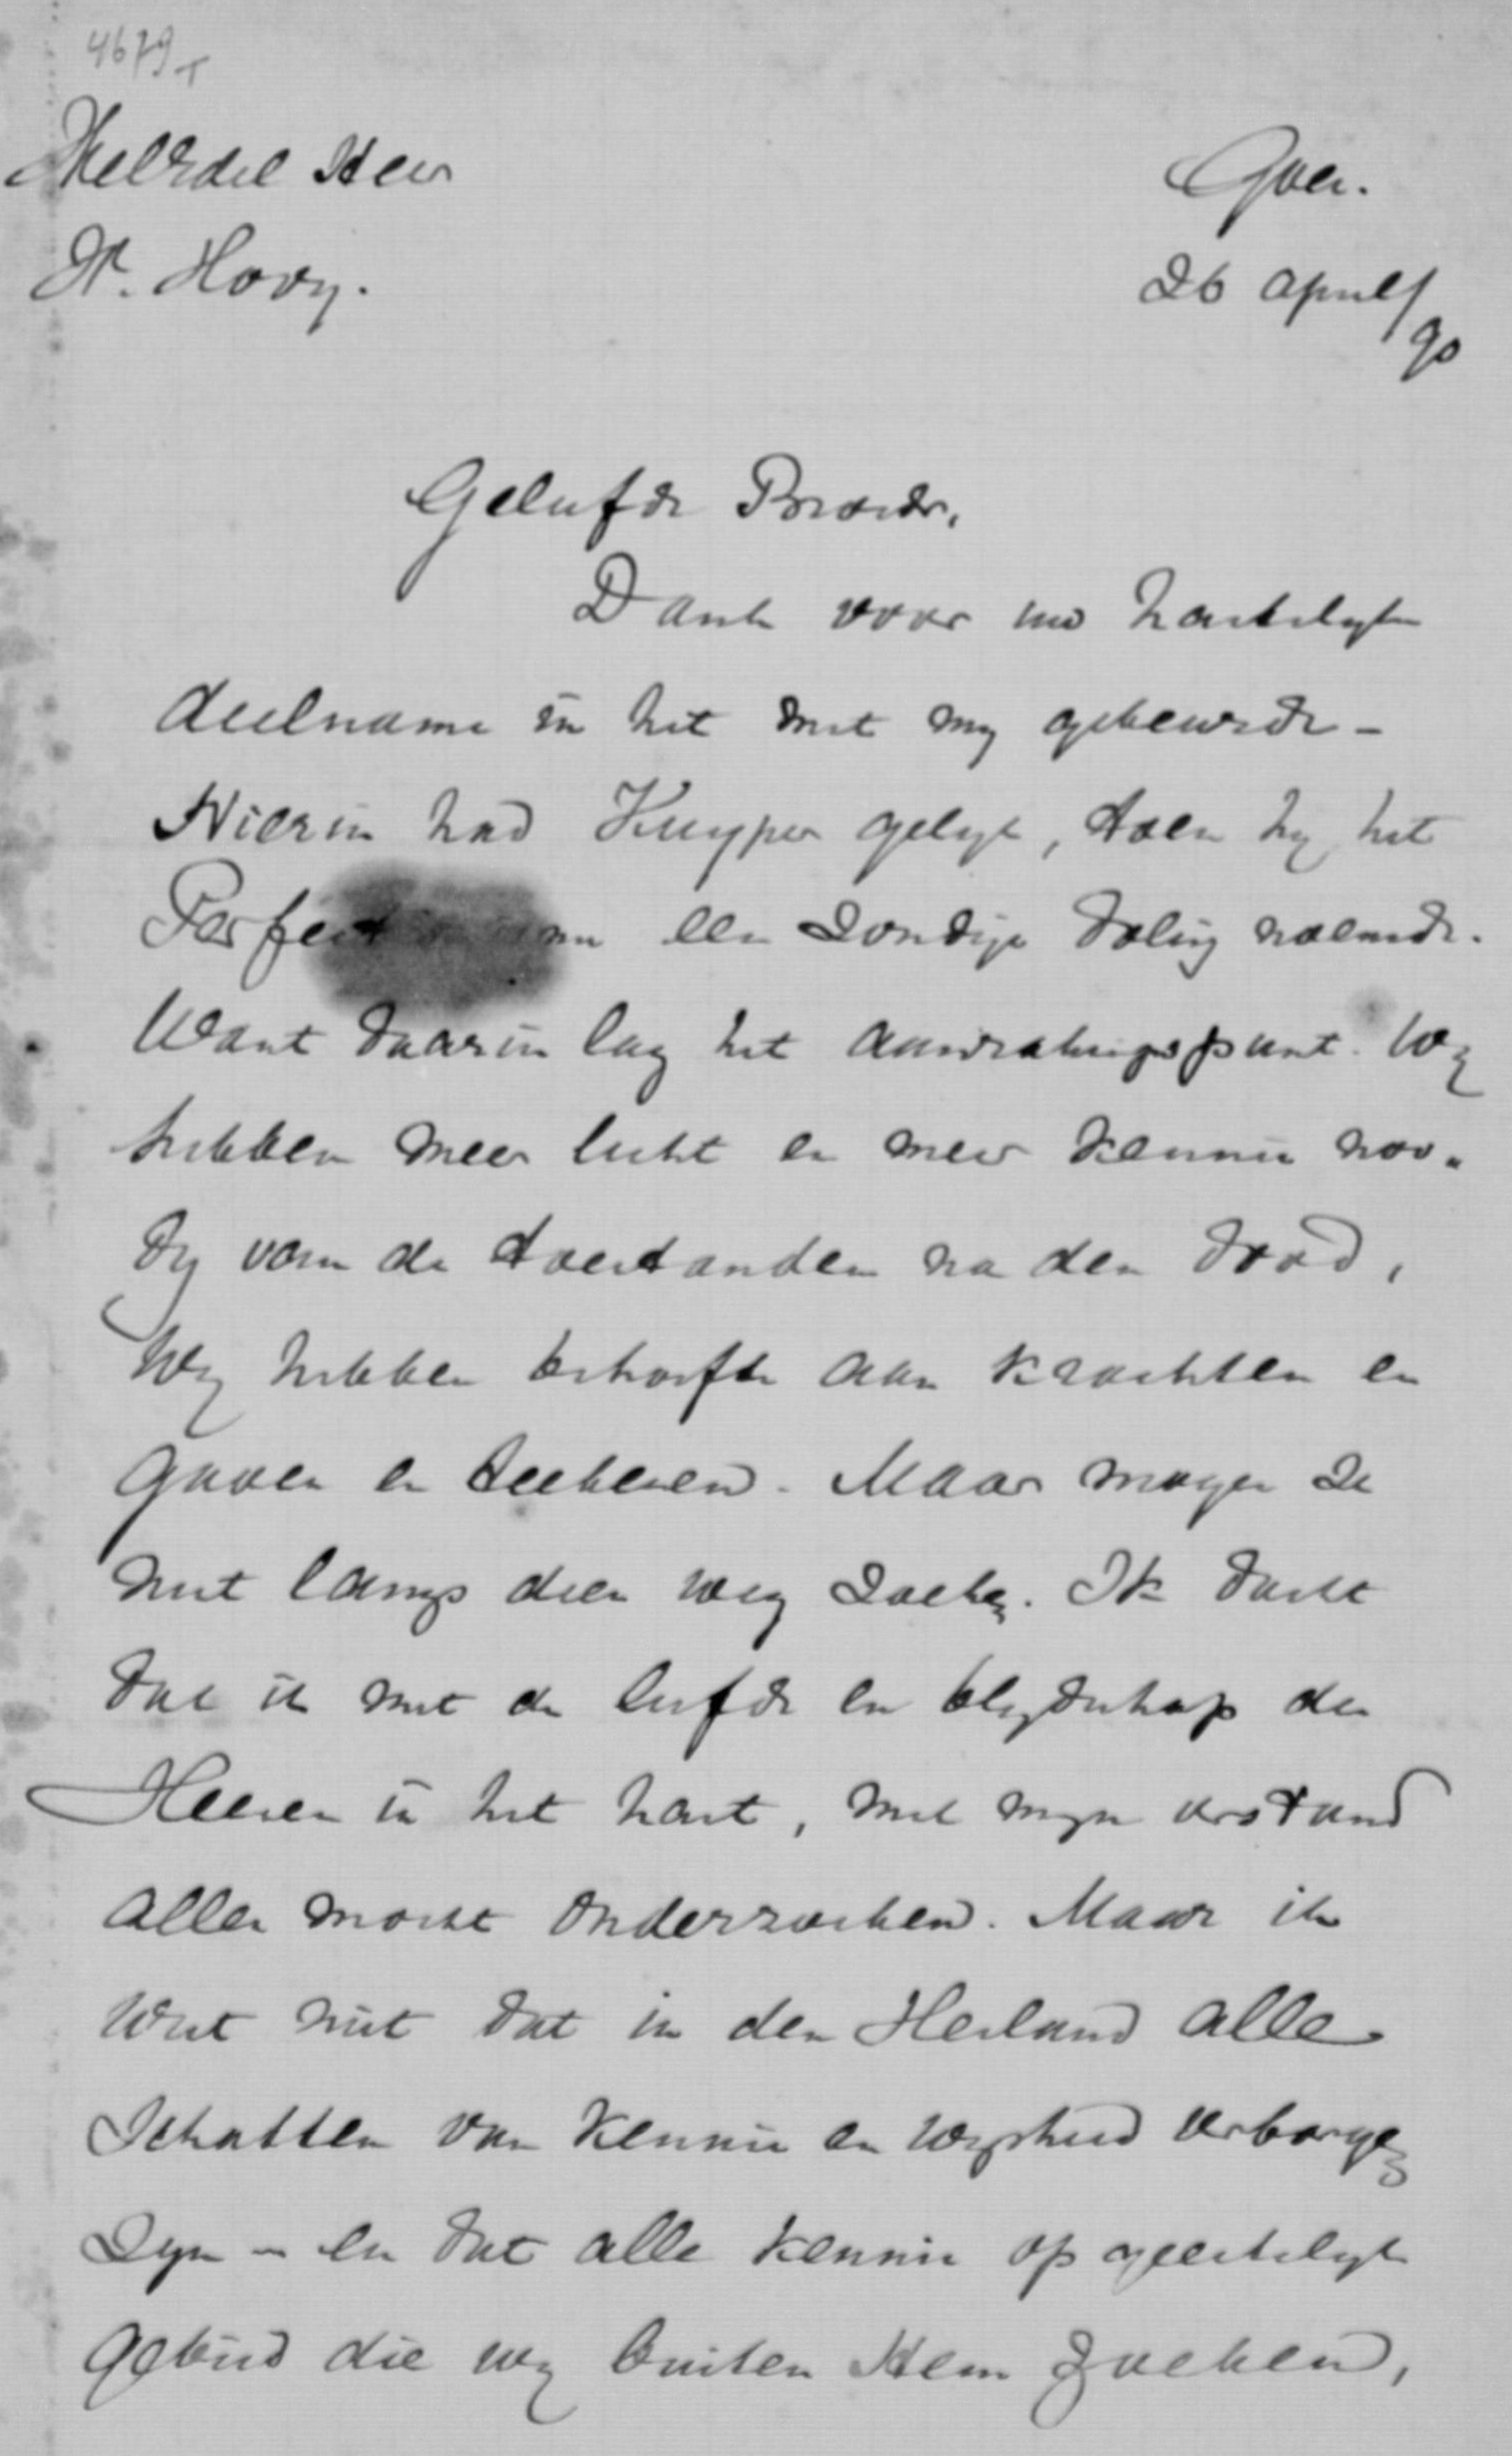 4679 T
WelEdel Heer
H. Hovy.
Goes.
26 april/90
Geliefde Broeder,
Dank voor uw hartelijke
deelname in het met my gebeurde –
Hierin had Kuyper gelijk, toen hy het
Perfect een zondige doling noemde.
Want daarin lag het aanrakingspunt. Wy
hebben meer licht en meer kennis noo-
dig van de toestanden na den dood,
Wy hebben behoefte aan krachten en
gaven en teekenen. Maar mogen ze
niet langs dien weg zoeken. Ik dacht
dat ik met de liefde en blydschap des
Heeren in het hart, met myn verstand
alles mocht onderzoeken. Maar ik
wist niet dat in den Heiland alle
Schatten van kennis en wysheid verborgen
zyn – en dat alle kennis op geestelijk
gebied die wy buiten Hem zoeken,